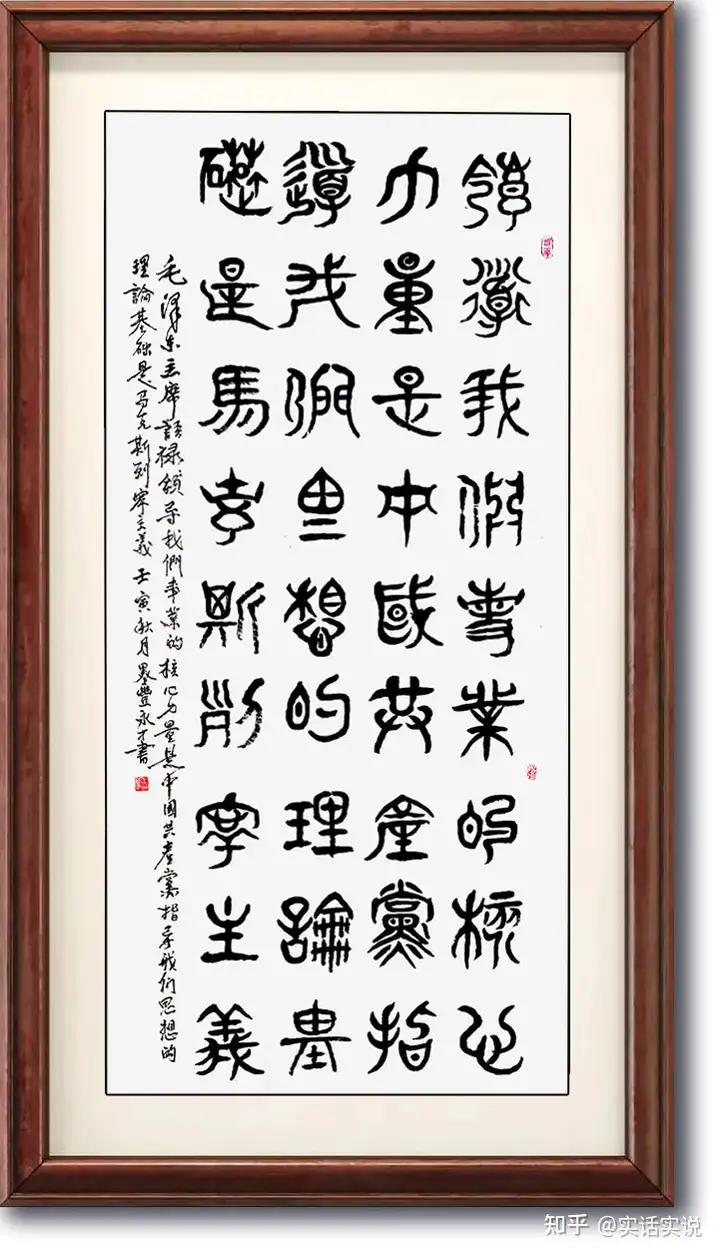 領導我們事業的核心
力量是中國共產黨指
導我們思想的理論基
礎是馬克斯列寧主義
毛澤东主席語録領导我們事業的核心力量是中国共產黨指导我们思想的
理論基础是马克斯列寧主義 壬寅秋月豐永才書
知乎 @实话实说